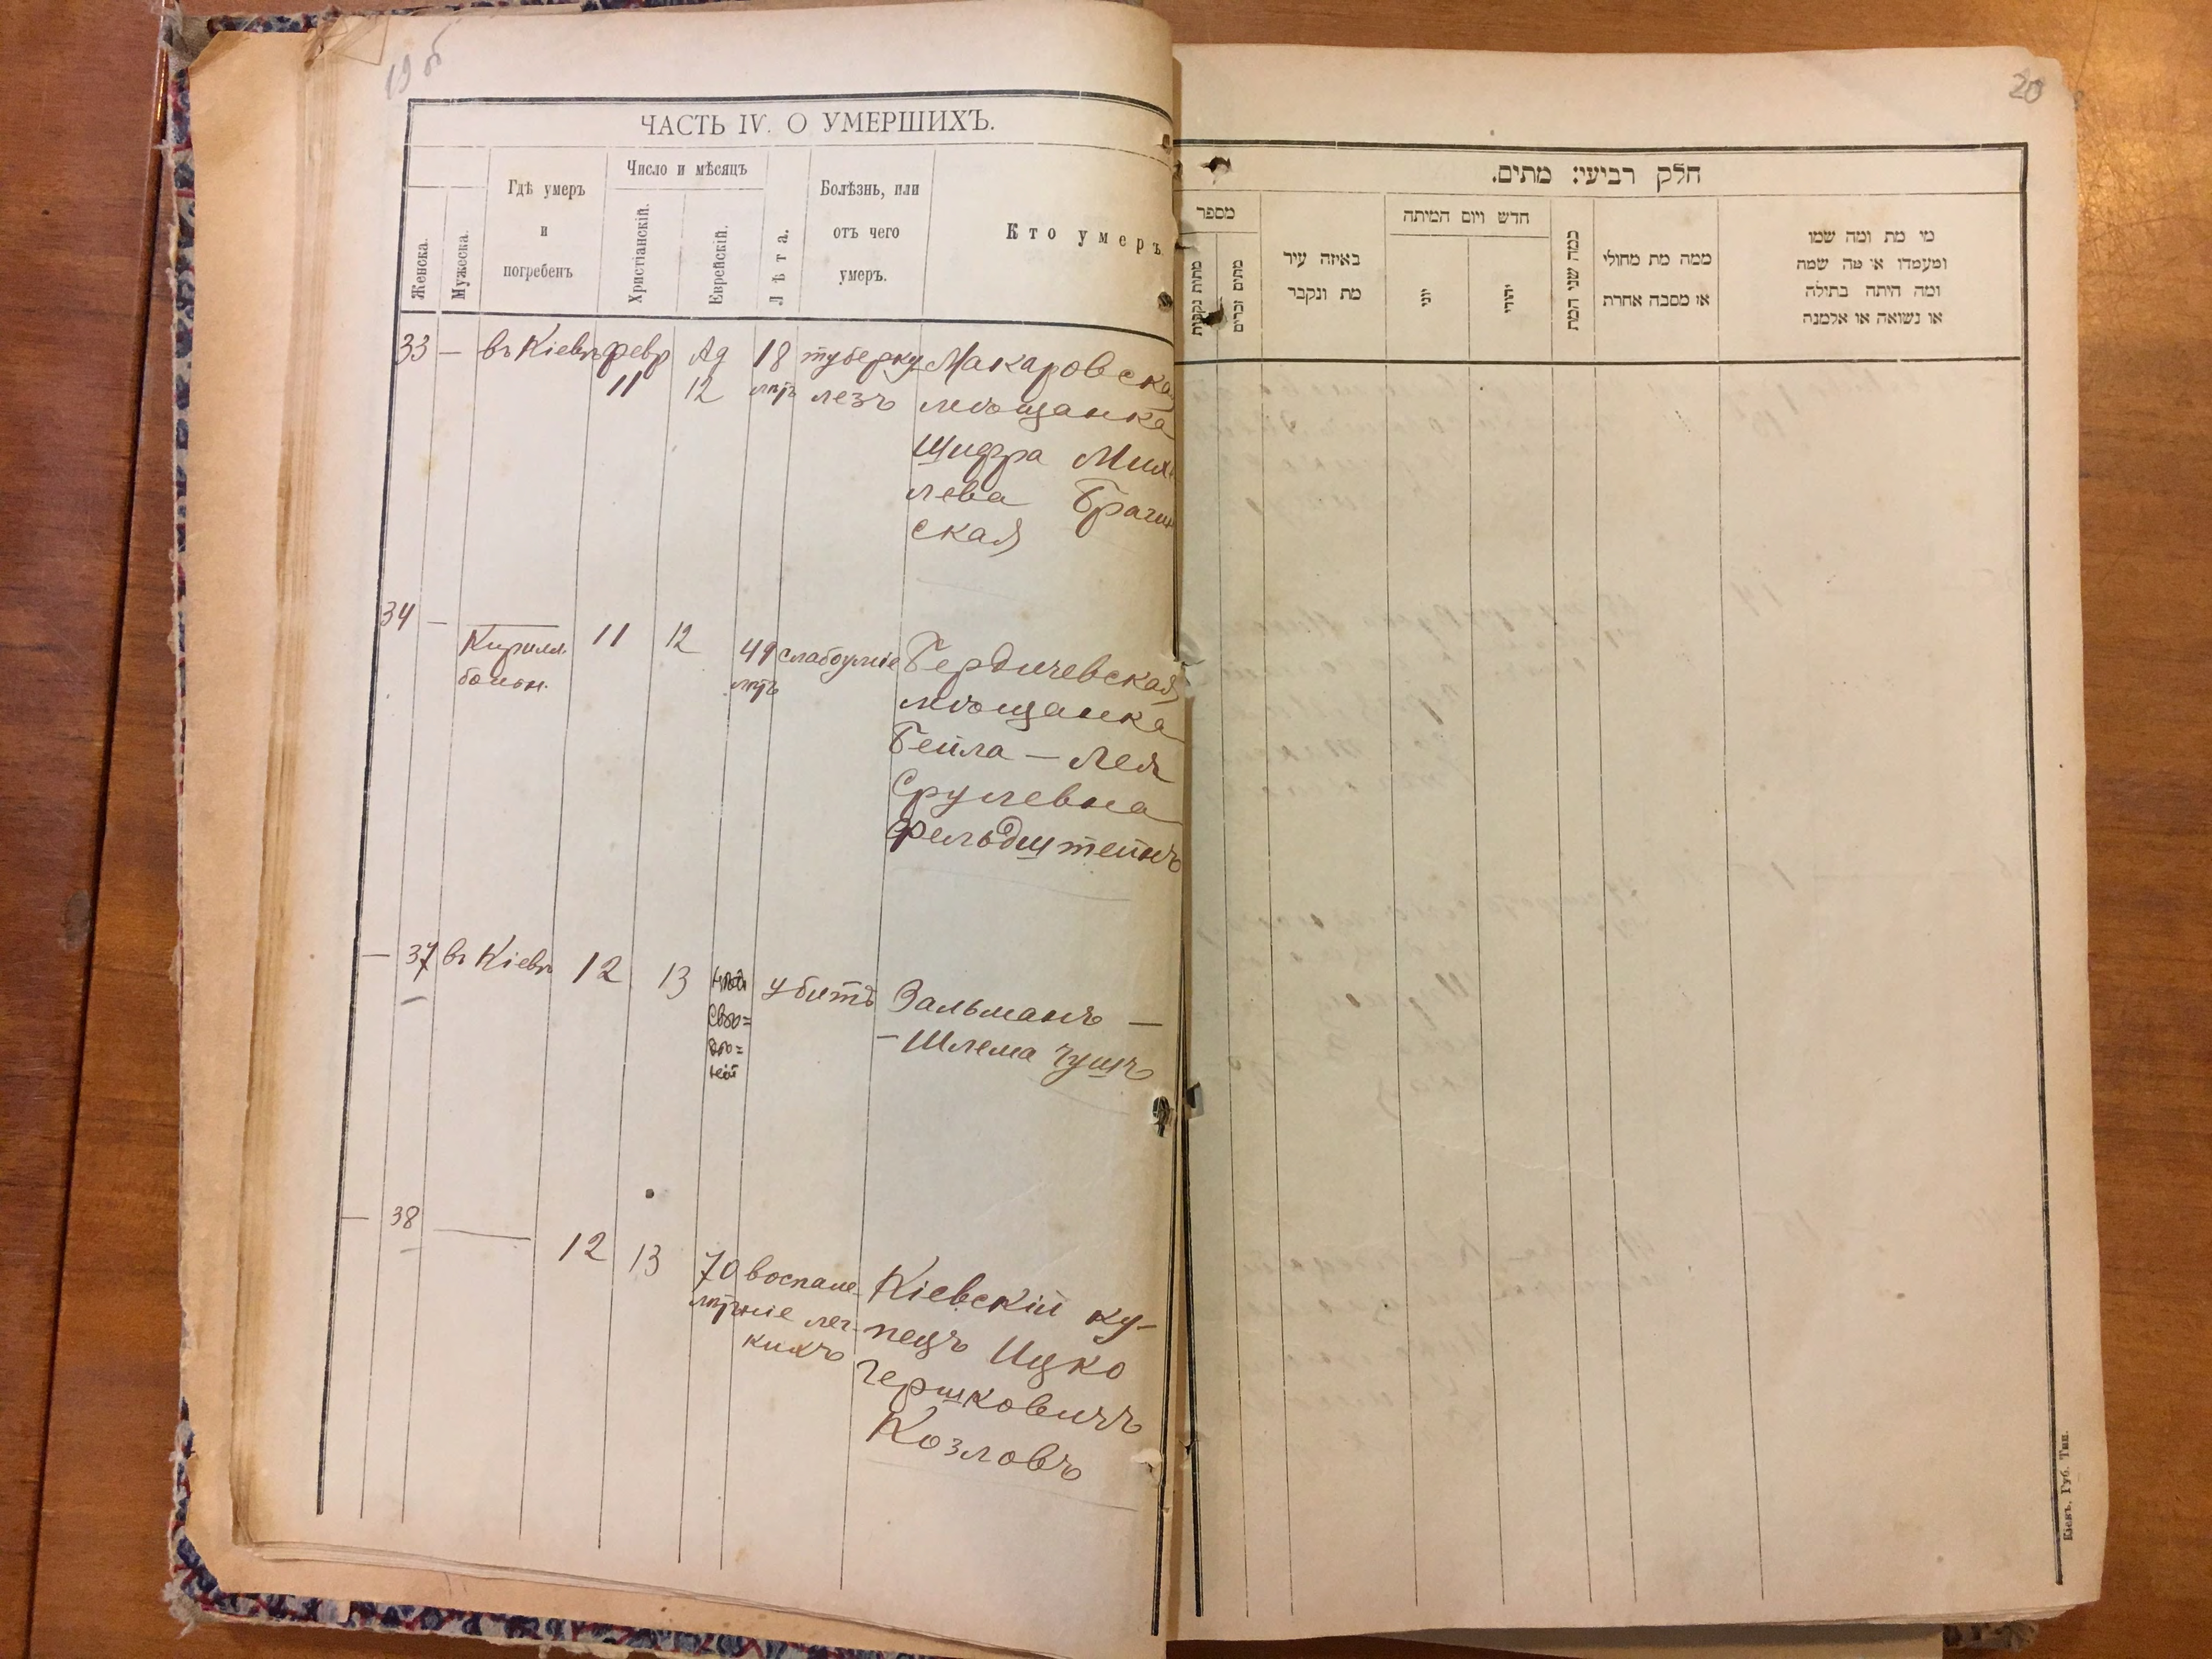 19 об
ЧАСТЬ IV. О УМЕРШИХЪ.
Женска.
Мужеска.
Гдѣ умеръ
и
погребенъ
Число и мѣсяцъ
Христіанскій.
Еврейскій.
Лѣта.
Болѣзнь, или
отъ чего
умеръ.
Кто умеръ
33 — въ Кіевѣ февр 11 Ад 12 18 лѣтъ туберку
лезъ
Макаровска
мѣщанка
Шифра Мих
лева Брагин
ская
34 — Кирилл.
больн.
11 12 49 лѣтъ слабоуміе
Бердичевская
мѣщанка
Бейла — Лея
Срулевна
Фельдштейнъ
— 37 въ Кіевѣ 12 13 убитъ
Зальманъ —
— Шлема Гушъ
— 38 — 12 13 70 лѣтъ воспале-
ніе лег-
кихъ
Кіевскій ку-
пецъ Ицко
Гершковичъ
Козловъ
20
חלק רביעי: מתים.
מספר
מתות נקבות
מתים זכרים
באיזה עיר
מת ונקבר
חדש ויום המיתה
יוני
יהודי
כמה שני המת
ממה מת מחולי
או מסבה אחרת
מי מת ומה שמו
ומעמדו או מה שמה
ומה היתה בתולה
או נשואה או אלמנה
Кіевъ, Губ. Тип.